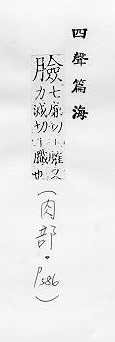 四聲篇海
臉
七廉切
又
力減切
也
(肉部·P386)